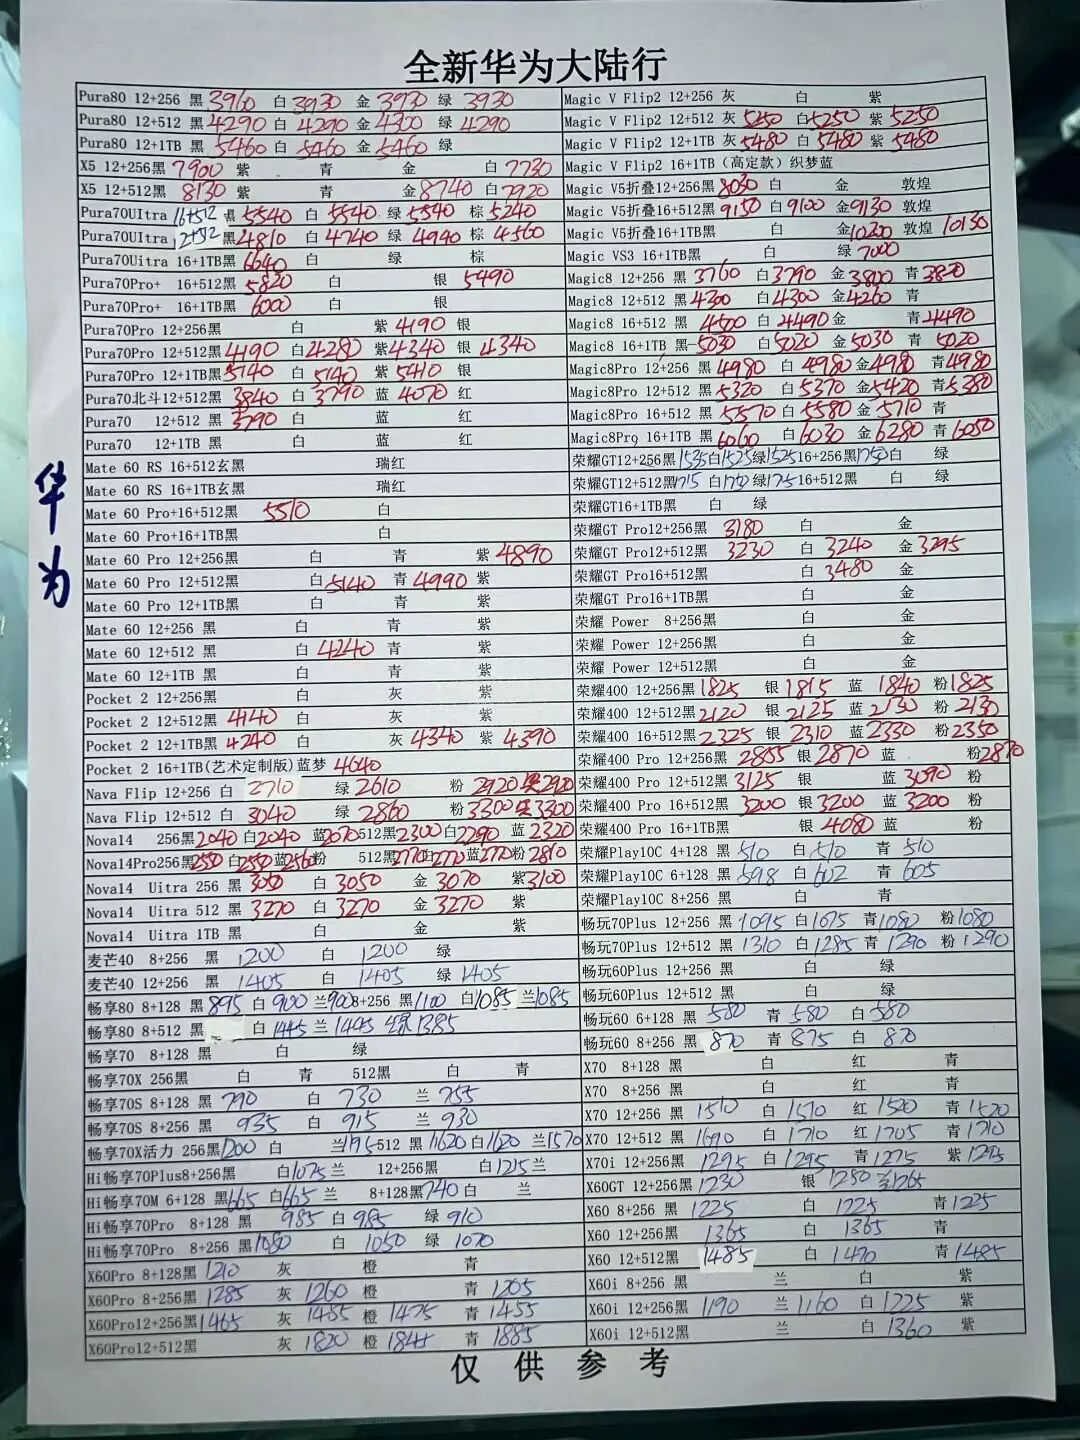 全新华为大陆行
华为
Pura80 12+256 黑 3960 白 3930 金 3930 绿 3930
Pura80 12+512 黑 4290 白 4290 金 4300 绿 4290
Pura80 12+1TB 黑 5460 白 5460 金 5460 绿
X5 12+256黑 7900 紫 青 金 白 7730
X5 12+512黑 8130 紫 青 金 8740 白 7920
Pura70UItra 16+512 黑 5540 白 5540 绿 5540 棕 5240
Pura70UItra 12+512 黑 4810 白 4740 绿 4940 棕 4560
Pura70Uitra 16+1TB黑 6640 白 绿 棕
Pura70Pro+ 16+512黑 5820 白 银 5490
Pura70Pro+ 16+1TB黑 6000 白 银
Pura70Pro 12+256黑 白 紫 4190 银
Pura70Pro 12+512黑 4190 白 4280 紫 4340 银 4340
Pura70Pro 12+1TB黑 5140 白 5140 紫 5410 银
Pura70北斗12+512黑 3840 白 3790 蓝 4070 红
Pura70 12+512 黑 3790 白 蓝 红
Pura70 12+1TB 黑 白 蓝 红
Mate 60 RS 16+512玄黑 瑞红
Mate 60 RS 16+1TB玄黑 瑞红
Mate 60 Pro+16+512黑 5510 白
Mate 60 Pro+16+1TB黑 白
Mate 60 Pro 12+256黑 白 青 紫 4890
Mate 60 Pro 12+512黑 白 5140 青 4990 紫
Mate 60 Pro 12+1TB黑 白 青 紫
Mate 60 12+256 黑 白 青 紫
Mate 60 12+512 黑 白 4240 青 紫
Mate 60 12+1TB 黑 白 青 紫
Pocket 2 12+256黑 白 灰 紫
Pocket 2 12+512黑 4140 白 灰 紫
Pocket 2 12+1TB黑 4240 白 灰 4340 紫 4390
Pocket 2 16+1TB(艺术定制版)蓝梦 4640
Nava Flip 12+256 白 2710 绿 2610 粉 2920 黑 2920
Nava Flip 12+512 白 3040 绿 2860 粉 3300 黑 3300
Nova14 256黑 2040 白 2040 蓝 2070 512黑 2300 白 2290 蓝 2320
Nova14Pro256黑 2550 白 2550 蓝 2560 粉 512黑 2770 白 2770 蓝 2770 粉 2810
Nova14 Uitra 256 黑 3050 白 3050 金 3070 紫 3100
Nova14 Uitra 512 黑 3270 白 3270 金 3270 紫
Nova14 Uitra 1TB 黑 白 金 紫
麦芒40 8+256 黑 1200 白 1200 绿
麦芒40 12+256 黑 1405 白 1405 绿 1405
畅享80 8+128 黑 895 白 900 兰 900 8+256 黑 1100 白 1085 兰 1085
畅享80 8+512 黑 白 1445 兰 1445 绿 1385
畅享70 8+128 黑 白 绿
畅享70X 256黑 白 青 512黑 白 青
畅享70S 8+128 黑 790 白 730 兰 755
畅享70S 8+256 黑 935 白 915 兰 930
畅享70X活力 256黑 1200 白 兰 1195 512 黑 1620 白 1620 兰 1570
Hi畅享70Plus8+256黑 白 1075 兰 12+256黑 白 1215 兰
Hi畅享70M 6+128 黑 665 白 665 兰 8+128黑 740 白 兰
Hi畅享70Pro 8+128 黑 985 白 985 绿 910
Hi畅享70Pro 8+256 黑 1050 白 1050 绿 1070
X60Pro 8+128黑 1210 灰 橙 青
X60Pro 8+256黑 1285 灰 1260 橙 青 1205
X60Pro12+256黑 1465 灰 1485 橙 1475 青 1455
X60Pro12+512黑 灰 1820 橙 1845 青 1885
Magic V Flip2 12+256 灰 白 紫
Magic V Flip2 12+512 灰 5250 白 5250 紫 5250
Magic V Flip2 12+1TB 灰 5480 白 5480 紫 5480
Magic V Flip2 16+1TB（高定款）织梦蓝
Magic V5折叠12+256黑 8030 白 金 敦煌
Magic V5折叠16+512黑 9150 白 9100 金 9130 敦煌
Magic V5折叠16+1TB黑 白 金 10200 敦煌 10130
Magic VS3 16+1TB黑 白 绿 7000
Magic8 12+256 黑 3760 白 3790 金 3800 青 3820
Magic8 12+512 黑 4300 白 4300 金 4260 青
Magic8 16+512 黑 4500 白 4490 金 青 4490
Magic8 16+1TB 黑 5030 白 5020 金 5030 青 5020
Magic8Pro 12+256 黑 4980 白 4980 金 4980 青 4980
Magic8Pro 12+512 黑 5320 白 5370 金 5420 青 5380
Magic8Pro 16+512 黑 5570 白 5580 金 5710 青
Magic8Pro 16+1TB 黑 6060 白 6030 金 6280 青 6050
荣耀GT12+256黑 1535 白 1525 绿 1525 16+256黑 1750 白 绿
荣耀GT12+512黑 1715 白 1720 绿 1725 16+512黑 白 绿
荣耀GT16+1TB黑 白 绿
荣耀GT Pro12+256黑 3180 白 金
荣耀GT Pro12+512黑 3230 白 3240 金 3295
荣耀GT Pro16+512黑 白 3480 金
荣耀GT Pro16+1TB黑 白 金
荣耀 Power 8+256黑 白 金
荣耀 Power 12+256黑 白 金
荣耀 Power 12+512黑 白 金
荣耀400 12+256黑 1825 银 1815 蓝 1840 粉 1825
荣耀400 12+512黑 2120 银 2125 蓝 2130 粉 2130
荣耀400 16+512黑 2325 银 2310 蓝 2330 粉 2350
荣耀400 Pro 12+256黑 2855 银 2870 蓝 粉 2870
荣耀400 Pro 12+512黑 3125 银 蓝 3090 粉
荣耀400 Pro 16+512黑 3200 银 3200 蓝 3200 粉
荣耀400 Pro 16+1TB黑 银 4080 蓝 粉
荣耀Play10C 4+128 黑 510 白 510 青 510
荣耀Play10C 6+128 黑 598 白 602 青 605
荣耀Play10C 8+256 黑 白 青
畅玩70Plus 12+256 黑 1095 白 1075 青 1080 粉 1080
畅玩70Plus 12+512 黑 1310 白 1285 青 1290 粉 1290
畅玩60Plus 12+256 黑 白 绿
畅玩60Plus 12+512 黑 白 绿
畅玩60 6+128 黑 580 青 580 白 580
畅玩60 8+256 黑 870 青 875 白 870
X70 8+128 黑 白 红 青
X70 8+256 黑 白 红 青
X70 12+256 黑 1510 白 1510 红 1520 青 1520
X70 12+512 黑 1690 白 1710 红 1705 青 1710
X70i 12+256 黑 1295 白 1295 青 1275 紫 1295
X60GT 12+256黑 1230 银 1250 兰 1265
X60 8+256 黑 1225 白 1225 青 1225
X60 12+256 黑 1365 白 1365 青
X60 12+512黑 1485 白 1470 青 1485
X60i 8+256 黑 兰 白 紫
X60i 12+256黑 1190 兰 1160 白 1225 紫
X60i 12+512黑 兰 白 1360 紫
仅供参考